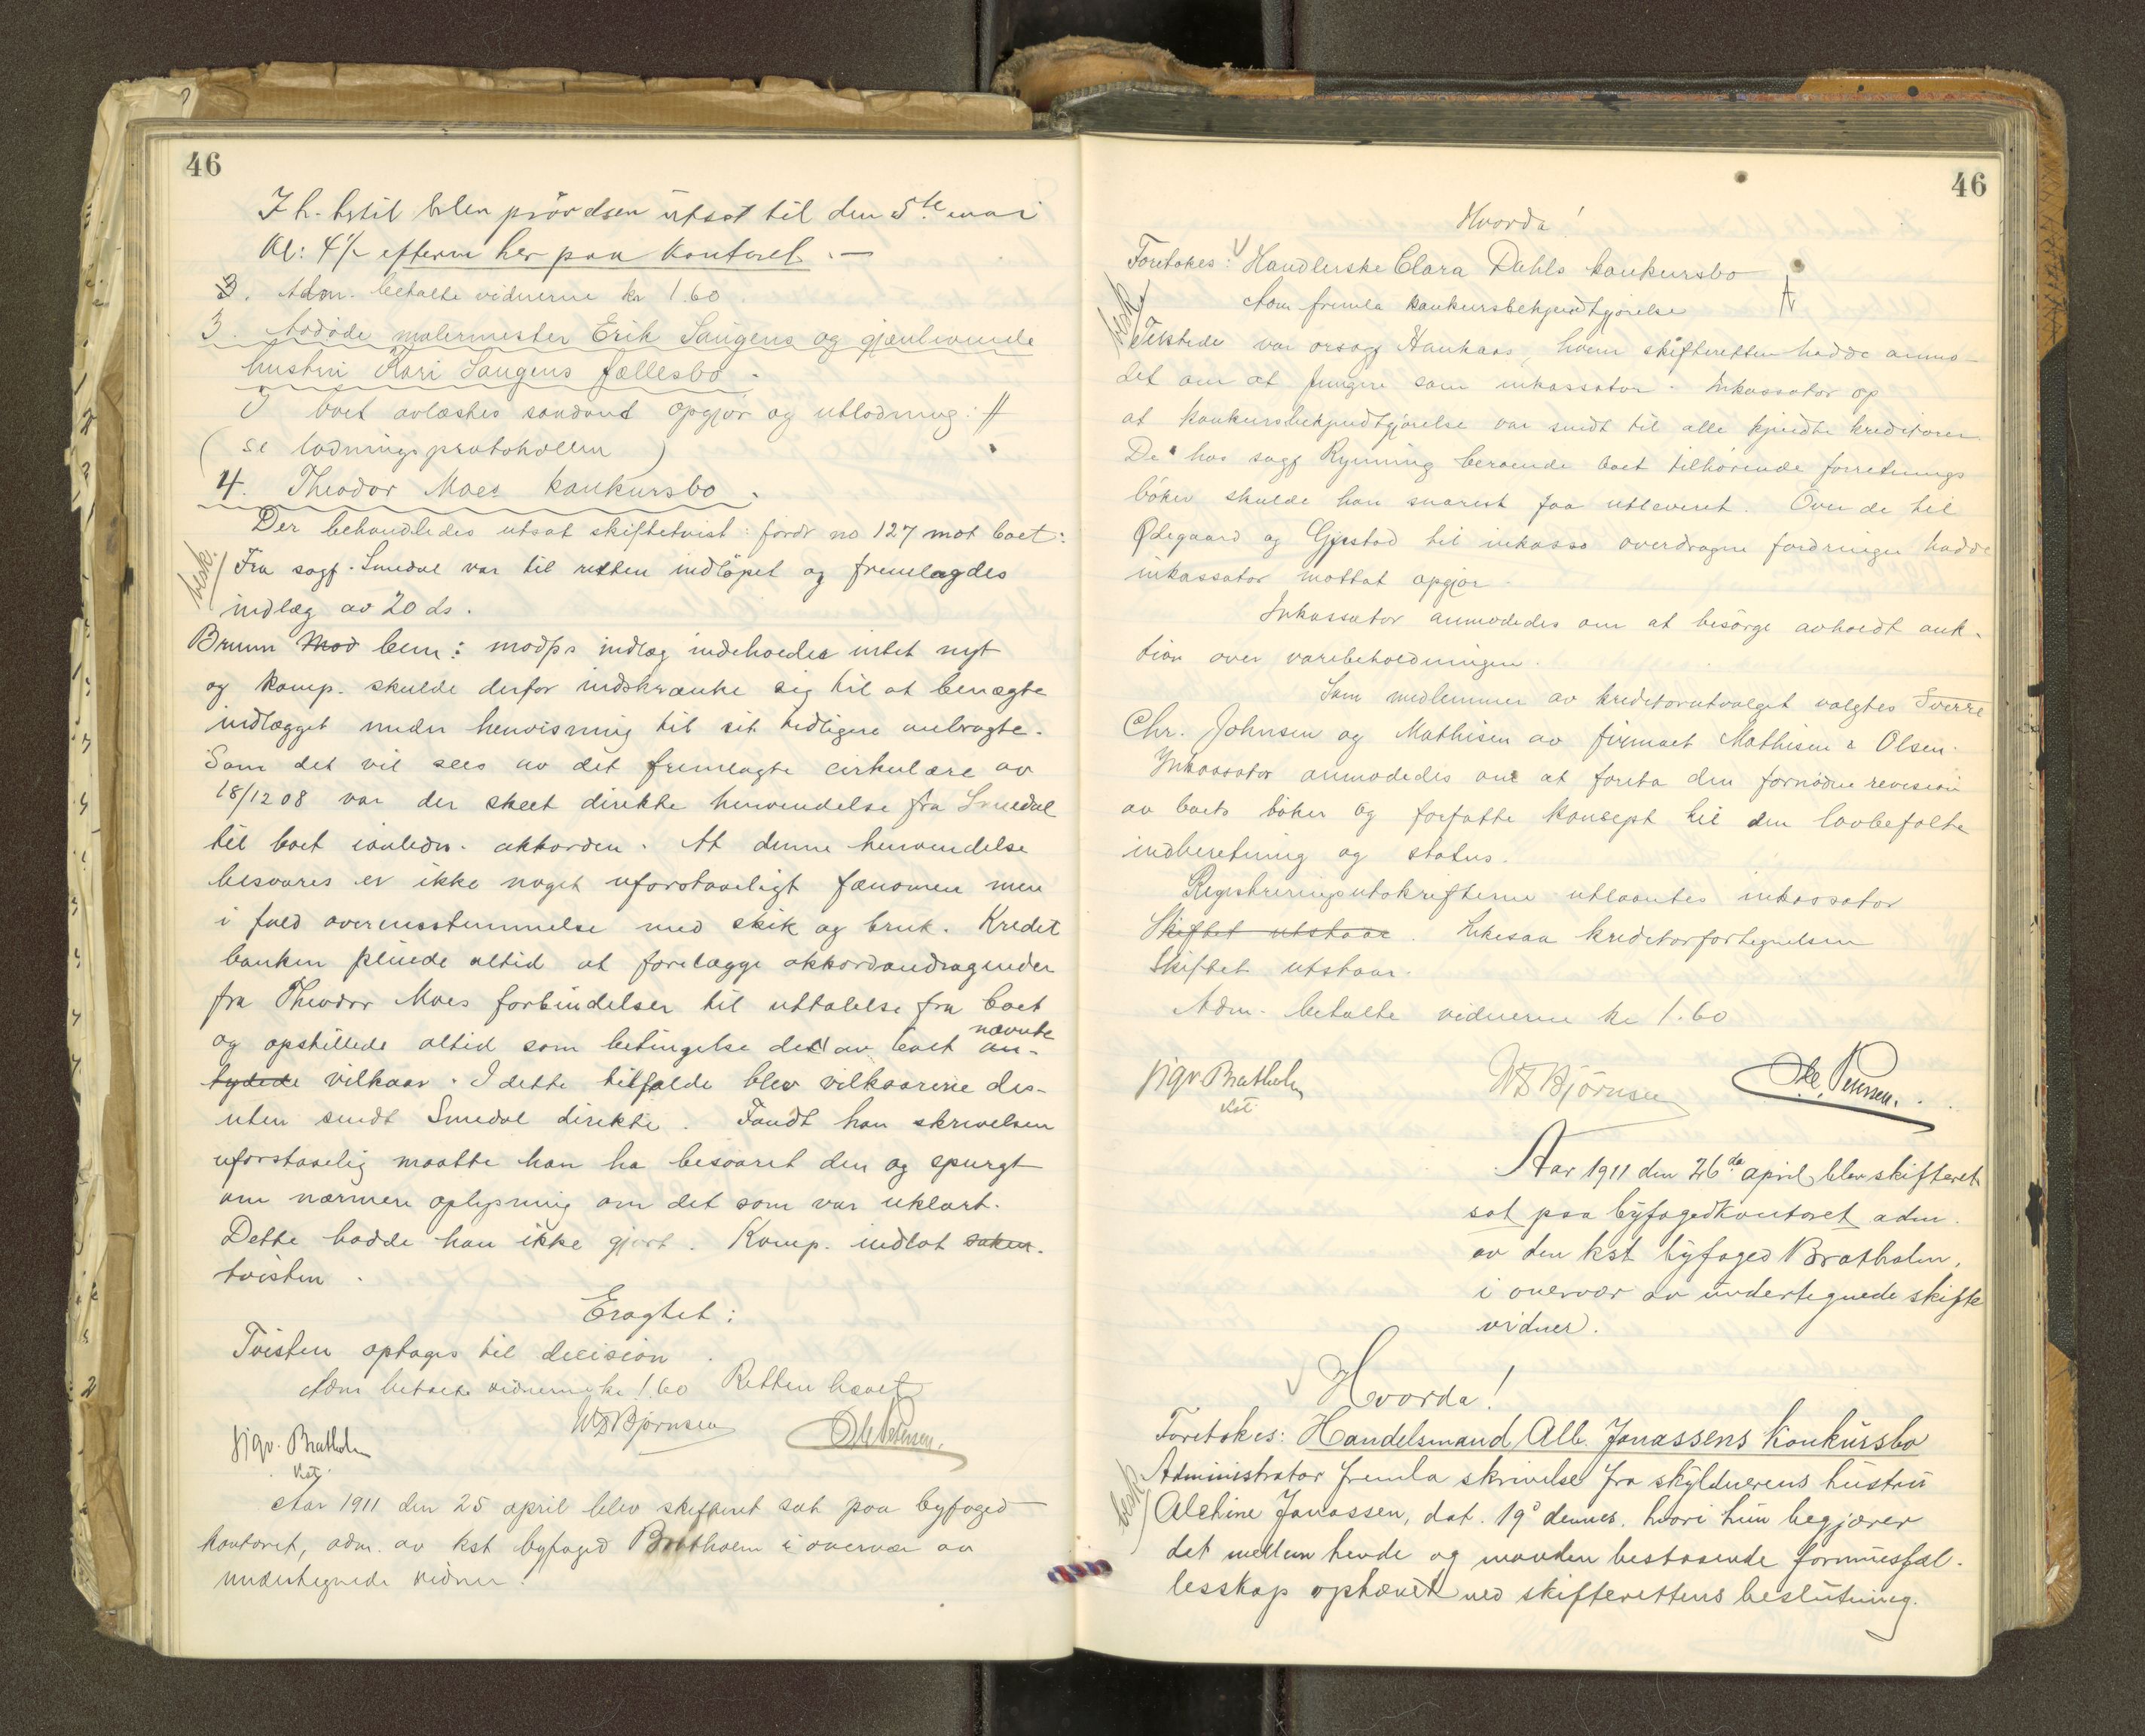 46
I h. hertil blev prövelsen utsat til den 5te mai
Kl: 4½ efterm her paa kontoret. —
3. Adm. betalte vidnerne kr 1.60.
3. Avdøde malermester Erik Saugens og gjenlevende
hustru Kari Saugens fællesbo.
I boet avlæstes saadant opgjør og utlodning: #
(se lodningsprotokollen)
4. Theodor Moes konkursbo.
Der behandledes utsat skiftetvist: fordr no 127 mot boet:
besk.
Fra sagf. Smedal var til retten indløpet og fremlagdes
indlæg av 20 ds.
Bruun Mod bem: modps indlæg indeholder intet nyt
og komp. skulde derfor indskrænke sig til at benægte
indlægget under henvisning til sit tidligere anbragte.
Som det vil sees av det fremlagte cirkulære av
18/12 08 var der skeet direkte henvendelse fra Smedal
til boet ianledn. akkorden. At denne henvendelse
besvares er ikke noget uforstaaeligt fænomen men
i fuld overensstemmelse med skik og bruk. Kredit
banken pleiede altid at forelægge akkordandragender
fra Theodor Moes forbindelser til uttalelse fra boet
og opstillede altid som betingelse de av boet an- nævnte
tydede vilkaar. I dette tilfælde blev vilkaarene des-
uten sendt Smedal direkte. Fandt han skrivelsen
uforstaaelig maatte han ha besvaret den og spurgt
om nærmere oplysning om det som var uklart.
Dette hadde han ikke gjort. Komp. indlot saken.
tvisten.
Eragtet:
Tvisten optages til decision.
Adm betalte vidnerne kr 1.60 Retten hævet
Sigv. Bratholm
Kst.
WD Bjørnsen
Ole Petersen.
Aar 1911 den 25 april blev skifteret sat paa byfoged
kontoret, adm. av kst byfoged Bratholm i overvær av
undertegnede vidner.
46
Hvorda!
Foretokes: Handlerske Clara Dahls konkursbo
Adm fremla konkursbekjendtgjørelse
besk
Tilstede var orsagf Haukaas, hvem skifteretten hadde anmo-
det om at fungere som inkassator. Inkassator op
at konkursbekjendtgjørelse var sendt til alle kjendte kreditorer
De hos sagf Rynning beroende boet tilhørende forretnings
bøker skulde han snarest faa utleveret. Over de til
Ødegaard og Gjestad til inkasso overdragne fordringer hadde
inkassator mottat opgjør.
Inkassator anmodedes om at besørge avholdt auk-
tion over varebeholdningen.
Som medlemmer av kreditorutvalget valgtes Sverre
Chr. Johnsen og Mathisen av firmaet Mathisen & Olsen.
Inkassator anmodedes om at foreta den fornødne revision
av boets bøker og forfatte konsept til den lovbefalte
indberetning og status.
Registreringsutskrifterne utlaantes inkassator
Skiftet utstaar. Likesaa kreditorfortegnelsen
Skiftet utstaar.
Adm. betalte vidnerne kr 1.60
Sigv. Bratholm
Kst.
WD Bjørnsen
Ole Petersen.
Aar 1911 den 26de april blev skifteret
sat paa byfogedkontoret adm.
av den kst byfoged Bratholm,
i overvær av undertegnede skifte
vidner.
Hvorda!
Foretokes: Handelsmand Alb. Jonassens konkursbo
besk.
Administrator fremla skrivelse fra skyldnerens hustru
Alethine Jonassen, dat. 19d dennes. hvori hun begjærer
det mellem hende og manden bestaaende formuesfæl-
lesskap ophævet ved skifterettens beslutning.